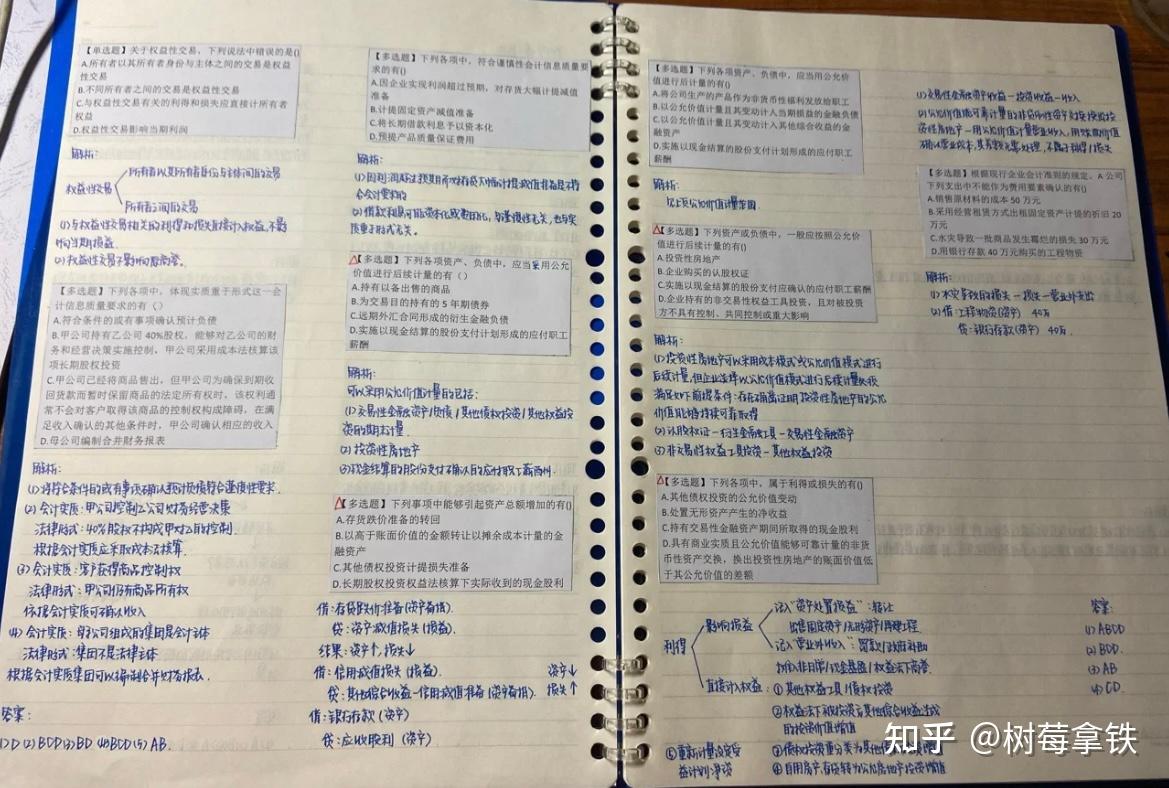 【单选题】关于权益性交易，下列说法中错误的是()
A.所有者以其所有者身份与主体之间的交易是权益
性交易
B.不同所有者之间的交易是权益性交易
C.与权益性交易有关的利得和损失应直接计入所有者
权益
D.权益性交易影响当期利润
解析:
所有者以其所有者身份与主体间的交易
权益性交易
所有者之间的交易
(1)与权益性交易相关的利得和损失直接计入权益,不影
响当期损益.
(2)权益性交易不影响
【多选题】下列各项中，体现实质重于形式这一会
计信息质量要求的有（）
A.符合条件的或有事项确认预计负债
B.甲公司持有乙公司 40%股权，能够对乙公司的财
务和经营决策实施控制，甲公司采用成本法核算该
项长期股权投资
C.甲公司已经将商品售出，但甲公司为确保到期收
回货款而暂时保留商品的法定所有权时，该权利通
常不会对客户取得该商品的控制权构成障碍，在满
足收入确认的其他条件时，甲公司确认相应的收入
D.母公司编制合并财务报表
解析:
(1)将符合条件的或有事项确认预计负债符合谨慎性要求.
(2)会计实质:甲公司控制乙公司财务经营决策
法律形式:40%股权不构成甲对乙的控制.
根据会计实质应采取成本法核算.
(3)会计实质:客户获得商品控制权
法律形式:甲公司仍有商品所有权
依据会计实质可确认收入
(4)会计实质:母子公司组成的集团是会计主体
法律形式:集团不是法律主体
根据会计实质集团可以编制合并财务报表.
答案:
(1)D (2)BCD (3)BD (4)BCD (5)AB.
【多选题】下列各项中，符合谨慎性会计信息质量要
求的有()
A.因企业实现利润超过预期，对存货大幅计提减值
准备
B.计提固定资产减值准备
C.将长期借款利息予以资本化
D.预提产品质量保证费用
解析:
(1)因利润超过预期而对存货大幅计提减值准备是不符
合会计要求的
(2)借款利息可能资本化或费用化,与谨慎性无关,也与实
质重于形式无关.
【多选题】下列各项资产、负债中，应当采用公允
价值进行后续计量的有（）
A.持有以备出售的商品
B.为交易目的持有的 5 年期债券
C.远期外汇合同形成的衍生金融负债
D.实施以现金结算的股份支付计划形成的应付职工
薪酬
解析:
可以采用公允价值计量的包括:
(1)交易性金融资产/负债/其他债权投资/其他权益投
资的期末计量.
(2)投资性房地产
(3)现金结算的股份支付确认的应付职工薪酬.
【多选题】下列事项中能够引起资产总额增加的有()
A.存货跌价准备的转回
B.以高于账面价值的金额转让以摊余成本计量的金
融资产
C.其他债权投资计提损失准备
D.长期股权投资权益法核算下实际收到的现金股利
借:存货跌价准备(资产备抵).
贷:资产减值损失(损益).
结果:资产↑,损失↓
借:信用减值损失(损益). 资产↓
贷:其他综合收益—信用减值准备(资产备抵). 损失↑
借:银行存款(资产)
贷:应收股利(资产)
【多选题】下列各项资产、负债中，应当用公允价
值进行后续计量的有()
A.将公司生产的产品作为非货币性福利发放给职工
B.以公允价值计量且其变动计入当期损益的金融负债
C.以公允价值计量且其变动计入其他综合收益的金
融资产
D.实施以现金结算的股份支付计划形成的应付职工
薪酬
解析:
公允价值计量范围.
【多选题】下列资产或负债中，一般应按照公允价
值进行后续计量的有()
A.投资性房地产
B.企业购买的认股权证
C.实施以现金结算的股份支付应确认的应付职工薪酬
D.企业持有的非交易性权益工具投资，且对被投资
方不具有控制、共同控制或重大影响
解析:
(1)投资性房地产可以采用成本模式或公允价值模式进行
后续计量,但企业选择以公允价值模式进行后续计量必须
满足如下前提条件:存在确凿证明投资性房地产的公允
价值能够持续可靠取得
(2)认股权证—衍生金融工具—交易性金融资产
(3)非交易性权益工具投资—其他权益投资
【多选题】下列各项中，属于利得或损失的有()
A.其他债权投资的公允价值变动
B.处置无形资产产生的净收益
C.持有交易性金融资产期间所取得的现金股利
D.具有商业实质且公允价值能够可靠计量的非货
币性资产交换，换出投资性房地产的账面价值低
于其公允价值的差额
记入"资产处置损益":转让
出售固定资产/无形资产/在建工程
影响损益
记入"营业外收入":罚款/政府补助
利得
直接计入权益:①其他权益工具/债权投资
②权益法下被投资方其他综合收益
③债权投资重分类为其他
④自用房产,存货转为公允房地产投资增值
⑤重新计量设定受
益计划净资
(1)交易性金融资产收益—投资收益—收入
(2)公允价值能可靠计量的非货币性资产交换换出投
资性房地产—用公允价值计量营业收入,用账面价值
确认营业成本,其差额
不属于利得/损失
【多选题】根据现行企业会计准则的规定，A 公司
下列支出中不能作为费用要素确认的有()
A.销售原材料的成本 50 万元
B.采用经营租赁方式出租固定资产计提的折旧 20
万元
C.水灾导致一批商品发生霉烂的损失 30 万元
D.用银行存款 40 万元购买的工程物资
解析:
(1)水灾导致的损失—损失—营业外支出
(2)借:工程物资(资产) 40万
贷:银行存款(资产) 40万.
答案:
(1)ABCD
(2)BCD.
(3)AB
(4)CD.
知乎 @树莓拿铁